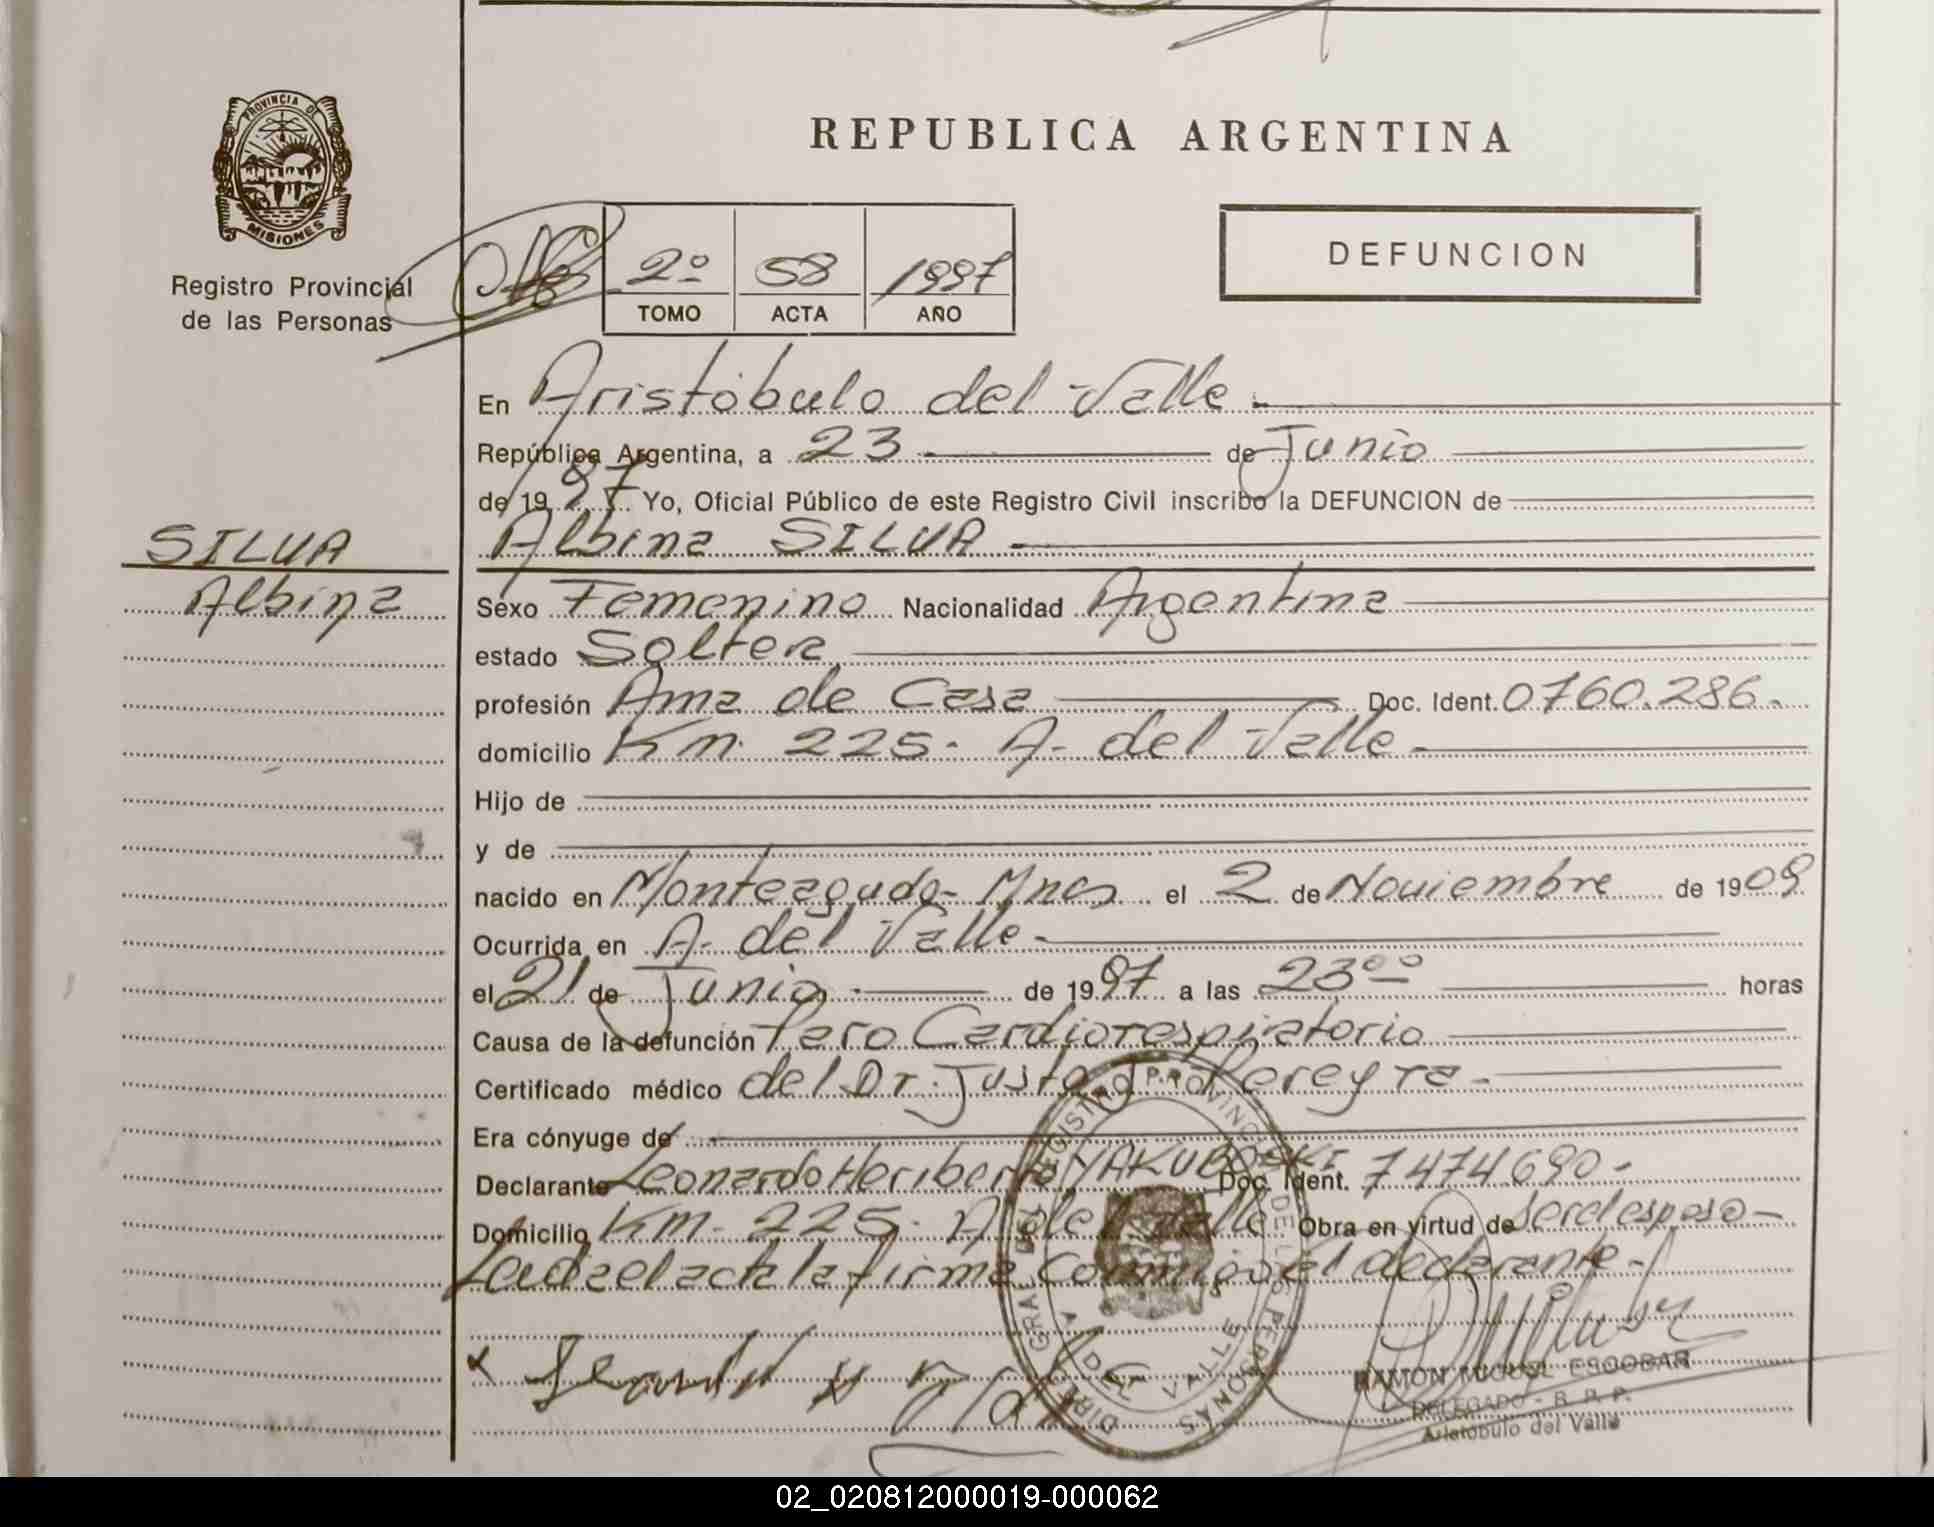 REPUBLICA ARGENTINA
PROVINCIA DE
MISIONES
Registro Provincial
de las Personas
2º 58 1997
TOMO ACTA AÑO
DEFUNCION
En Aristóbulo del Valle.-
República Argentina, a 23 de Junio
de 19 97 Yo, Oficial Público de este Registro Civil inscribo la DEFUNCION de
SILVA
Albina
Albina SILVA.-
Sexo Femenino Nacionalidad Argentina
estado Soltera
profesión Ama de Casa Doc. Ident. 0760.286.
domicilio Km. 225. A. del Valle.-
Hijo de
y de
nacido en Monteagudo- Mnes el 2 de Noviembre de 1909
Ocurrida en A. del Valle.-
el 21 de Junio.- de 19 97 a las 23ºº horas
Causa de la defunción Paro Cardiorespiratorio
Certificado médico del Dr. Justo J. Pereyra.-
Era cónyuge de
Declarante Leonardo Heriberto YAKUBOSKI Doc. Ident. 7474690.-
Domicilio Km. 225. A. del Valle Obra en virtud de ser el esposo-
Leida el acta la firma Conmigo el declarante.-
DIR. GRAL. DEL REGISTRO PROVINCIAL DE LAS PERSONAS
A. DEL VALLE
RAMON MIGUEL ESCOBAR
DELEGADO - R. P. P.
Aristóbulo del Valle
02_020812000019-000062